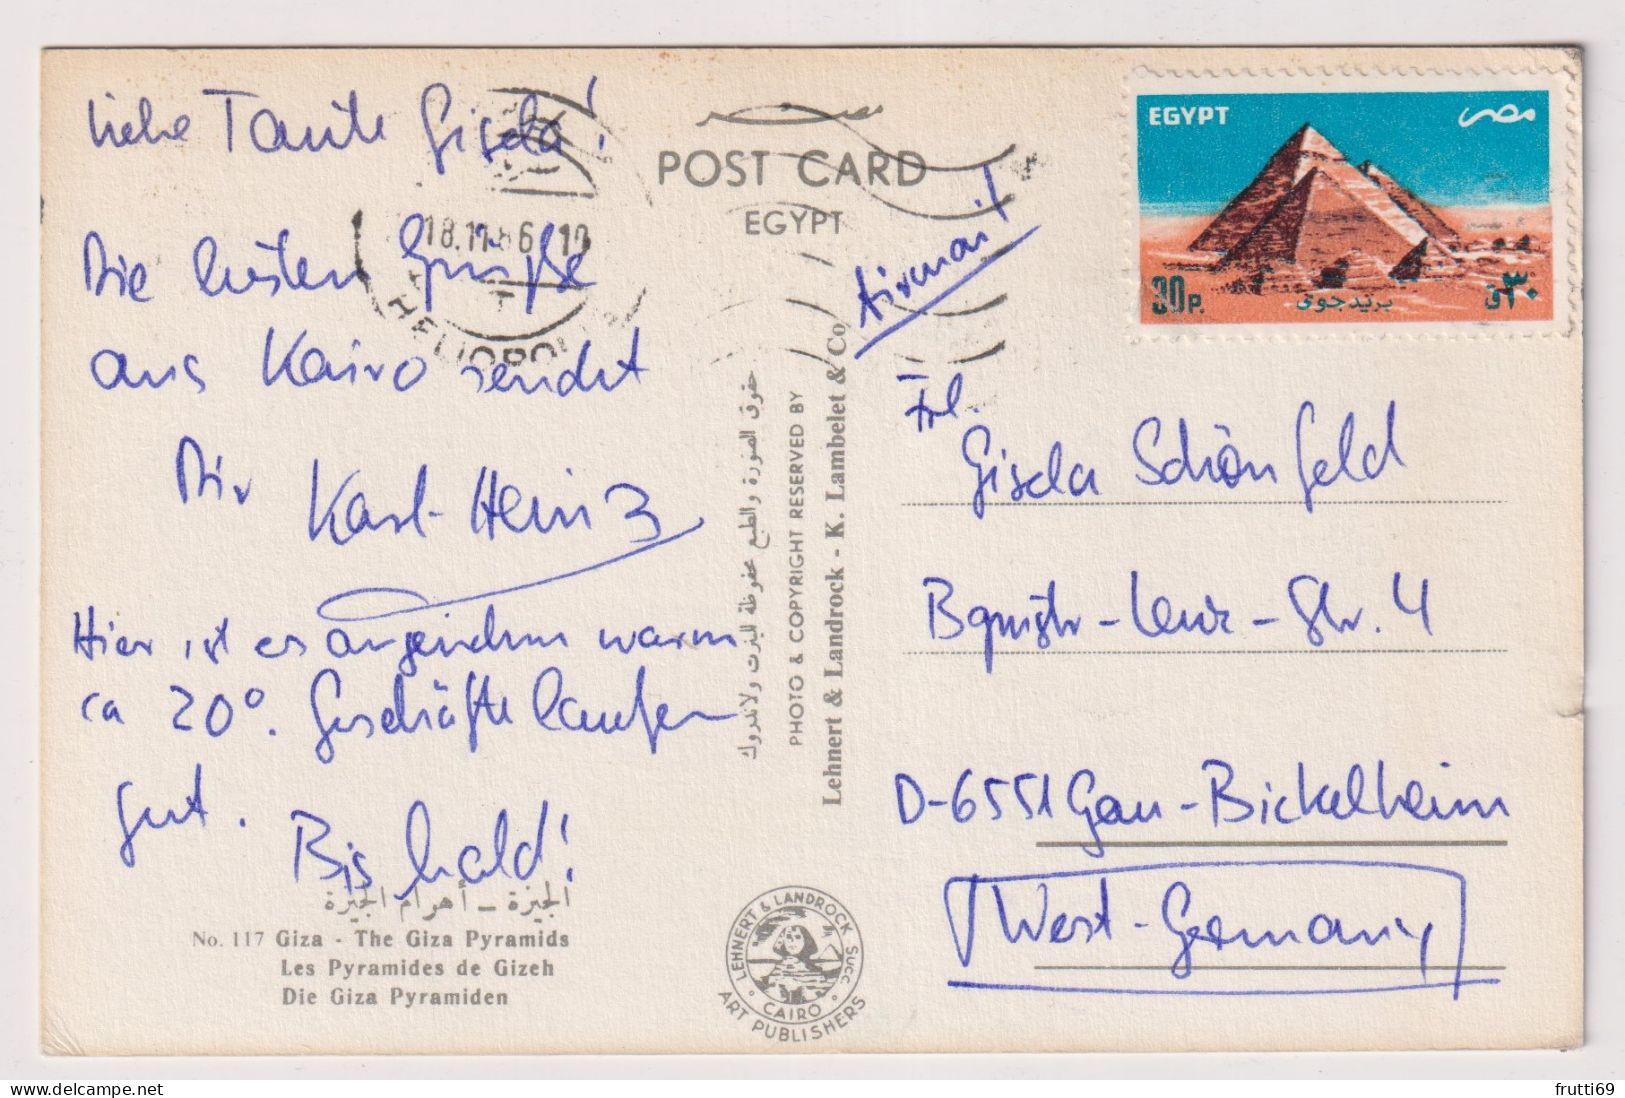 Liebe Tante Gisela!
Die besten Grüße
aus Kairo sendet
Dir Karl-Heinz
Hier ist es angenehm warm
ca 20°. Geschäfte laufen
gut.
Bis bald!
الجيزة - أهرام الجيزة
No. 117 Giza - The Giza Pyramids
Les Pyramides de Gizeh
Die Giza Pyramiden
18.11.86 10
HELIOPOLIS
مصر
POST CARD
EGYPT
حقوق الصورة والطبع محفوظة للينرت ولاندروك
PHOTO & COPYRIGHT RESERVED BY
Lehnert & Landrock - K. Lambelet & Co
LEHNERT & LANDROCK SUCC
CAIRO
ART PUBLISHERS
Airmail
EGYPT مصر
30P. ٣٠ق
بريد جوى
Frl.
Gisela Schönfeld
Bgmstr-Lenz-Str. 4
D-6551 Gau-Bickelheim
West-Germany
frutti69